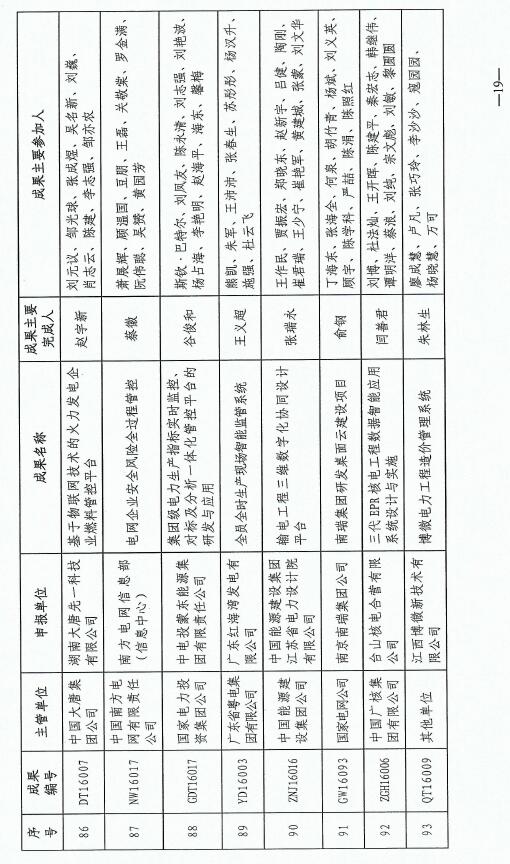 序号 成果编号 主管单位 申报单位 成果名称 成果主要完成人 成果主要参加人
86 DT16007 中国大唐集团公司 湖南大唐先一科技有限公司 基于物联网技术的火力发电企业燃料管控平台 赵宇新 刘元议、邹光球、张成煜、吴名新、刘巍、肖志云、陈建、李志强、邹亦农
87 NW16017 中国南方电网有限责任公司 南方电网信息部（信息中心） 电网企业安全风险全过程管控 蔡徽 萧展辉、顾温国、豆朋、王磊、关敬棠、罗金满、阮伟聪、吴赟、黄园芳
88 GDT16017 国家电力投资集团公司 中电投蒙东能源集团有限责任公司 集团级电力生产指标实时监控、对标及分析一体化管控平台的研发与应用 谷俊和 斯钦·巴特尔、刘凤友、陈永清、刘志强、刘艳波、杨占海、李艳明、赵海平、海东、馨梅
89 YD16003 广东省粤电集团有限公司 广东红海湾发电有限公司 全员全时生产现场智能监管系统 王义超 熊凯、朱军、王沛沛、张春生、苏彤彤、杨汉升、施强、杜云飞
90 ZNJ16016 中国能源建设集团公司 中国能源建设集团江苏省电力设计院有限公司 输电工程三维数字化协同设计平台 张瑞永 王作民、贾振宏、郑晓东、赵新宇、吕健、陶刚、崔君瑞、王少宁、崔艳军、黄建城、张蒙、刘文华
91 GW16093 国家电网公司 南京南瑞集团公司 南瑞集团研发桌面云建设项目 俞钢 丁海东、张海全、何泉、胡竹青、杨斌、刘义英、顾宇、陈学科、严喆、陈涓、陈照红
92 ZGH16006 中国广核集团公司 台山核电合营有限公司 三代EPR核电工程数据智能应用系统设计与实施 闫善君 刘博、杜法灿、王开晖、陈建平、秦宏志、韩继伟、谭明洋、蔡浪、刘纯、宗文彪、刘敏、黎圆圆
93 QT16009 其他单位 江西博微新技术有限公司 博微电力工程造价管理系统 朱林生 廖成慧、卢凡、张巧玲、李沙沙、寇园园、杨晓慧、万可
—19—